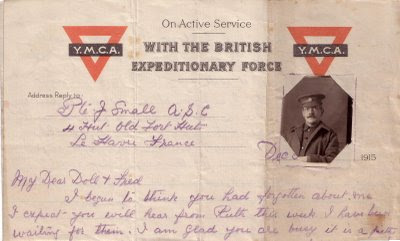 On Active Service
Y.M.C.A.
WITH THE BRITISH
EXPEDITIONARY FORCE
Y.M.C.A.
Address Reply to
Pte J Small A.S.C
4 Hut Old Fort Huts
Le Havre France
Dec 1915
My Dear Doll & Fred
I began to think you had forgotten about me
I expect you will hear from Ruth this week I have been
waiting for them. I am glad you are busy it is a